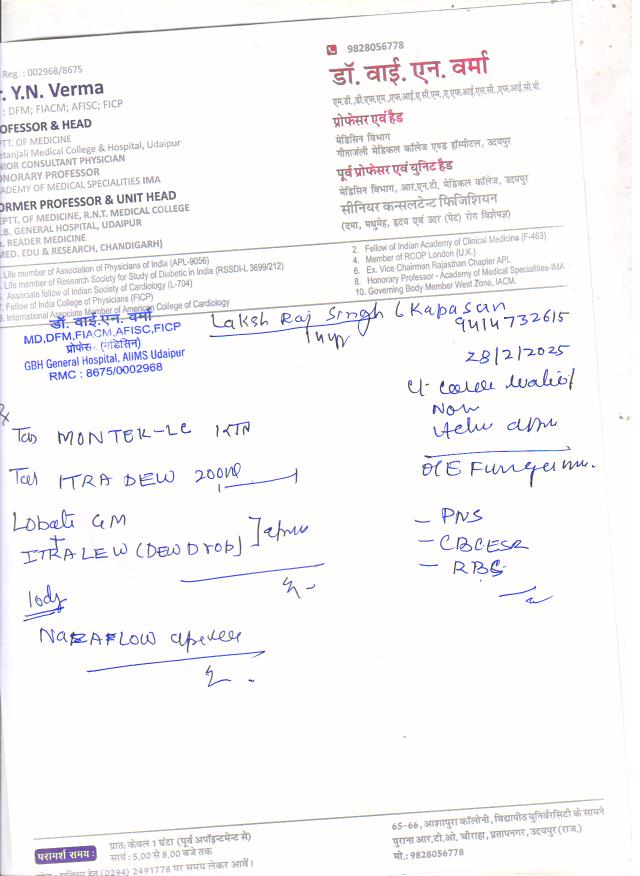 Reg. : 002968/8675
r. Y.N. Verma
: DFM; FIACM; AFISC; FICP
OFESSOR & HEAD
PTT. OF MEDICINE
etanjali Medical College & Hospital, Udaipur
NIOR CONSULTANT PHYSICIAN
ONORARY PROFESSOR
ADEMY OF MEDICAL SPECIALITIES IMA
ORMER PROFESSOR & UNIT HEAD
PTT. OF MEDICINE, R.N.T. MEDICAL COLLEGE
.B. GENERAL HOSPITAL, UDAIPUR
. READER MEDICINE
MED. EDU & RESEARCH, CHANDIGARH)
9828056778
डॉ. वाई. एन. वर्मा
एम.डी.,डी.एफ.एम.,एफ.आई.ए.सी.एम.,ए.एफ.आई.एस.सी.,एफ.आई.सी.पी.
प्रोफेसर एवं हैड
मेडिसिन विभाग
गीतांजली मेडिकल कॉलेज एण्ड हॉस्पीटल, उदयपुर
पूर्व प्रोफेसर एवं युनिट हैड
मेडिसिन विभाग, आर.एन.टी. मेडिकल कॉलेज, उदयपुर
सीनियर कन्सलटेन्ट फिजिशियन
(दमा, मधुमेह, हृदय एवं उदर (पेट) रोग विशेषज्ञ)
Life member of Association of Physicians of India (APL-9056)
Life member of Research Society for Study of Diabetic in India (RSSDI-L 3699/212)
Associate fellow of Indian Society of Cardiology (L-704)
Fellow of India College of Physicians (FICP)
International Associate Member of American College of Cardiology
2. Fellow of Indian Academy of Clinical Medicine (F-463)
4. Member of RCOP London (U.K.)
6. Ex. Vice Chairman Rajasthan Chapter APL
8. Honorary Professor - Academy of Medical Specialities-IMA
10. Governing Body Member West Zone, IACM.
डॉ. वाई.एन. वर्मा
MD,DFM,FIACM,AFISC,FICP
प्रोफेसर (मेडिसिन)
GBH General Hospital, AIIMS Udaipur
RMC : 8675/0002968
Laksh Raj Singh Kapasan
9414732615
28/2/2025
Now
Tab MONTEK-LC
Tab ITRA DEW 200
O/E Fungal
Lobate GM
+
ITRALEW (DEW Drop)
- PNS
- CBC ESR
- RBS
NAZAFLOW
परामर्श समय :
प्रातः केवल 1 घंटा (पूर्व अपॉइन्टमेन्ट से)
सायं : 5.00 से 8.00 बजे तक
(0294) 2491778 पर समय लेकर आवें।
65-66, आशापुरा कॉलोनी, विद्यापीठ युनिवरसिटी के सामने
पुराना आर.टी.ओ. चौराहा, प्रतापनगर, उदयपुर (राज.)
मो.: 9828056778